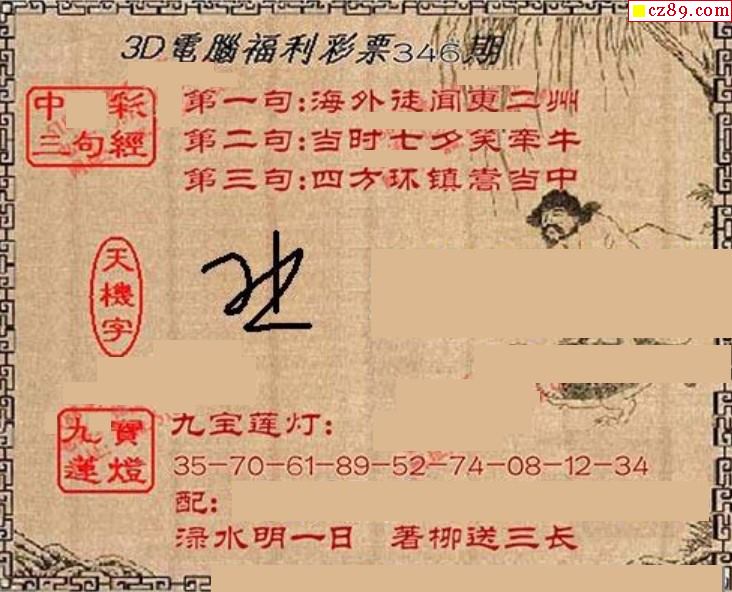 cz89.com
3D電腦福利彩票346期
中 彩
三句經
第一句:海外徒闻東二州
第二句:当时七夕笑牵牛
第三句:四方环镇嵩当中
天機字
九寶
蓮燈
九宝莲灯:
35-70-61-89-52-74-08-12-34
配:
渌水明一日 著柳送三长